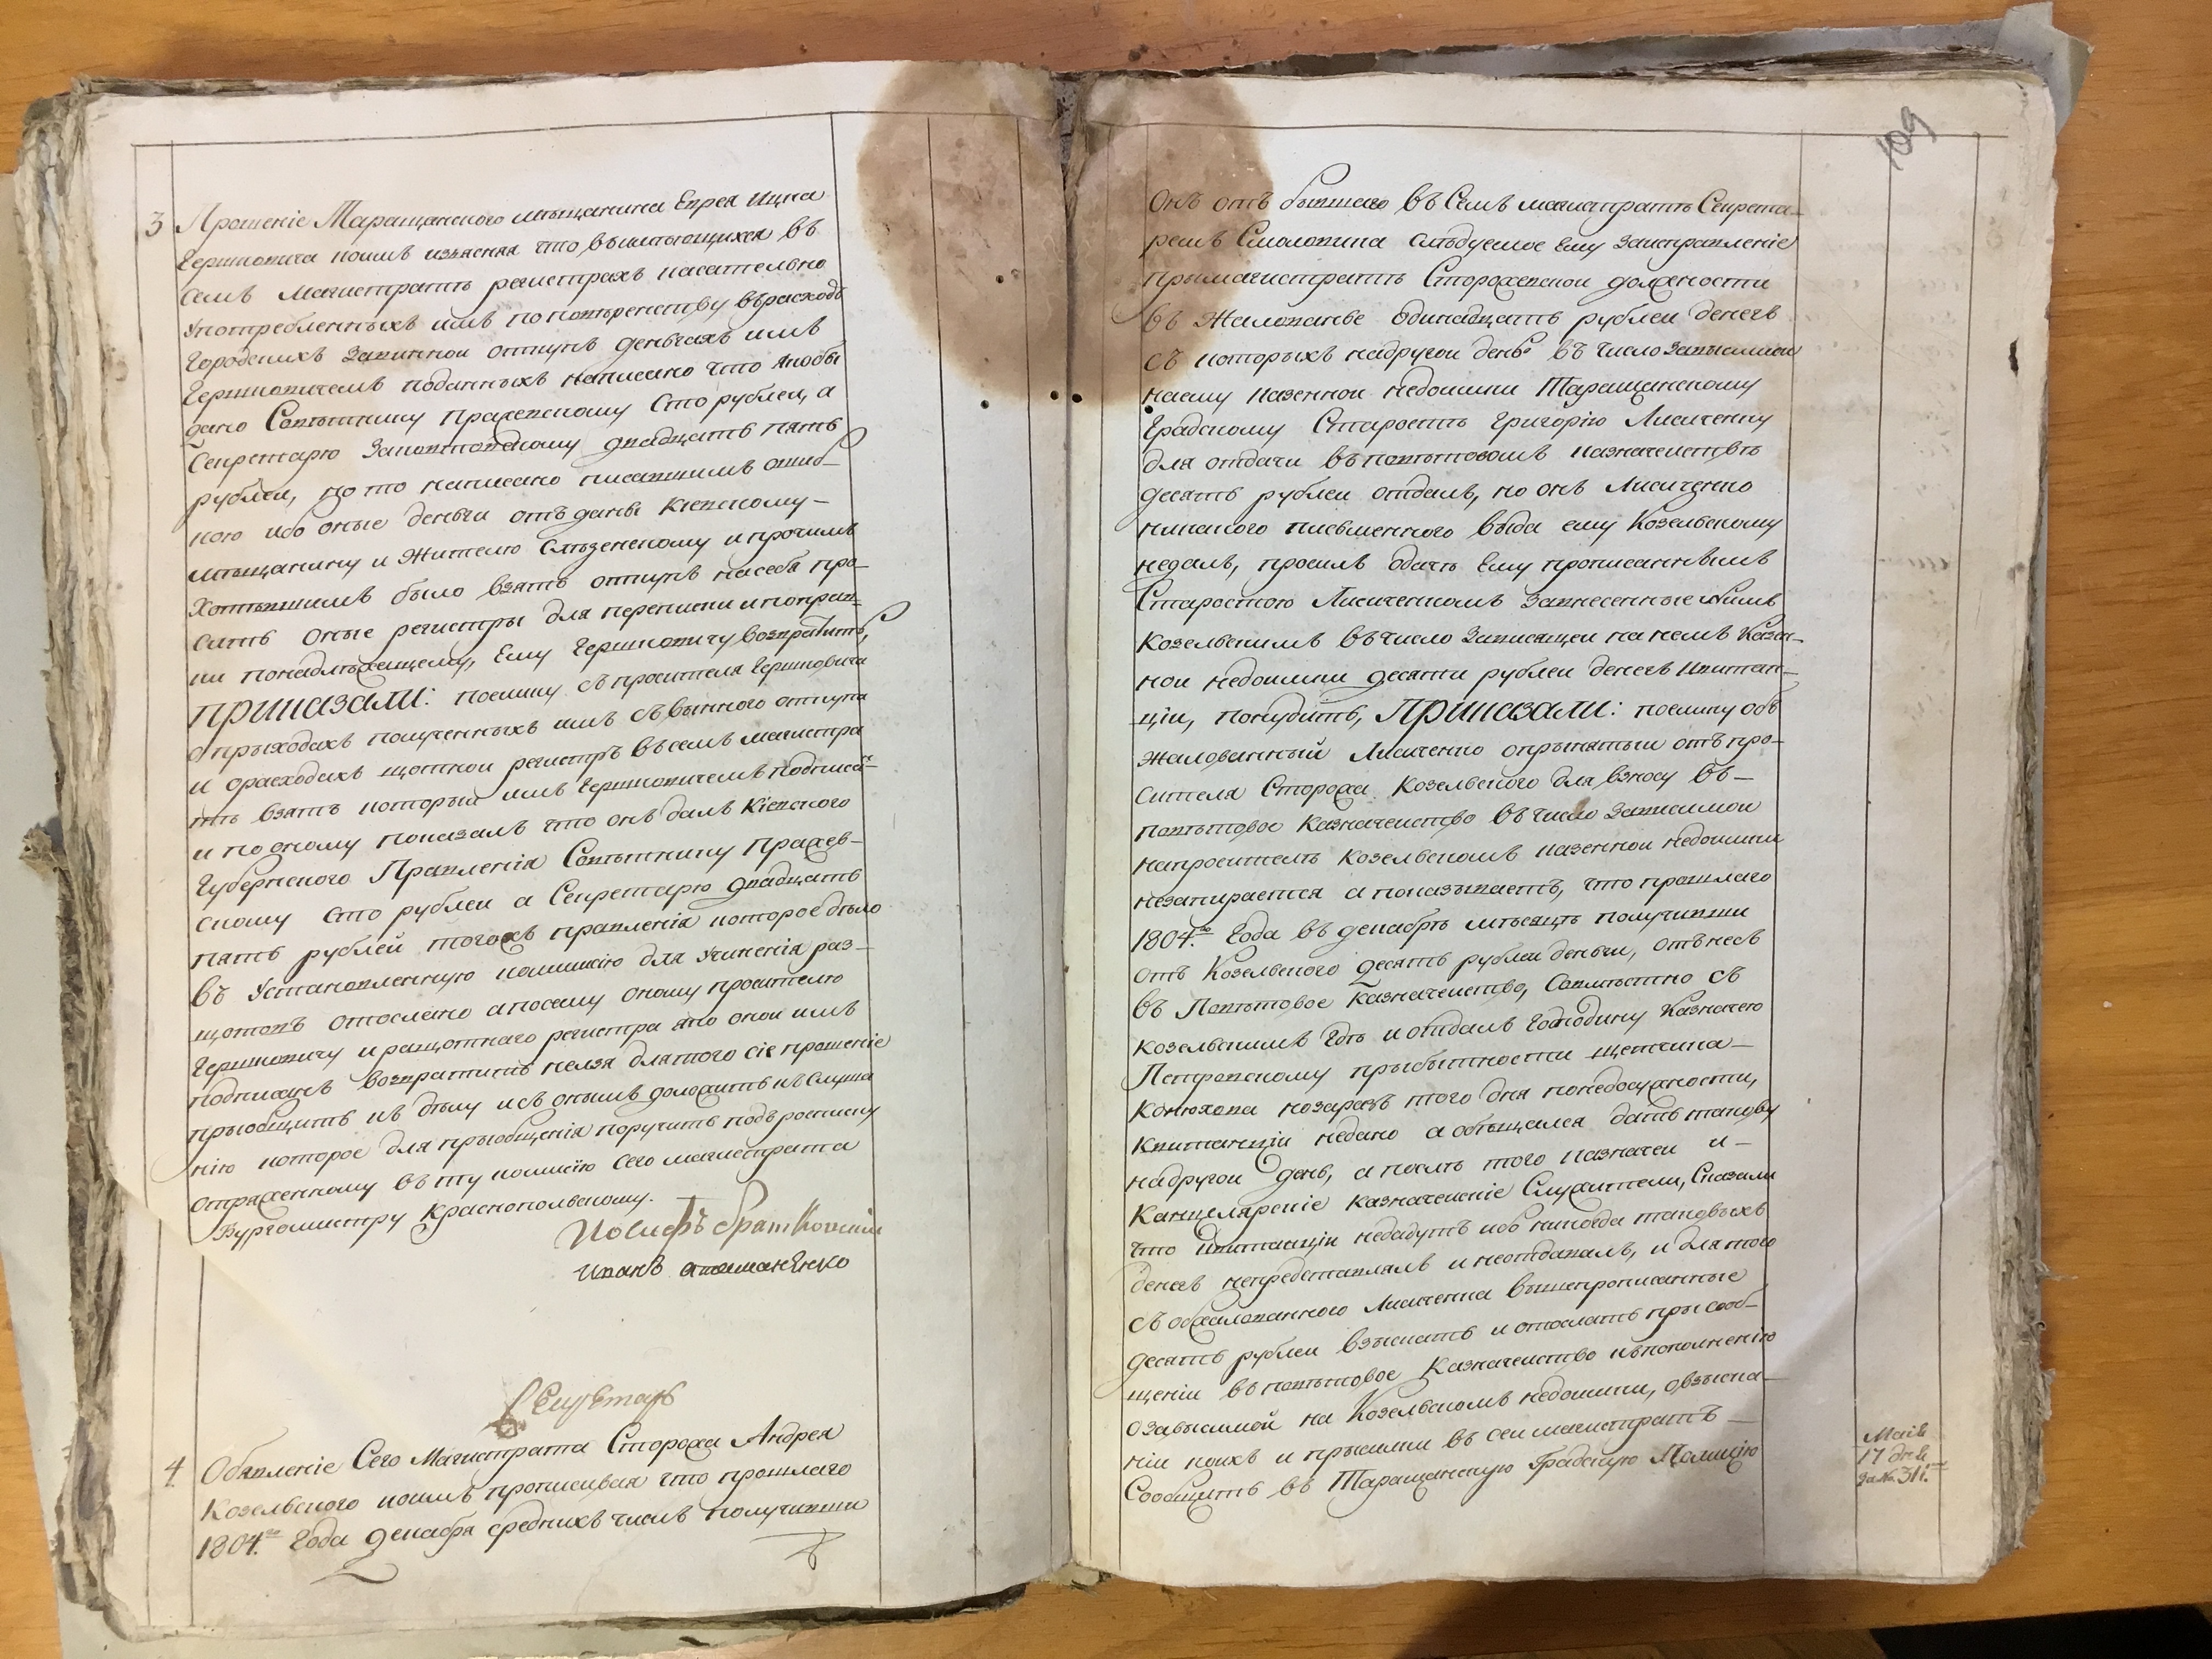 3 Прошеніе Таращанского мѣщанина Еврея Ицка
Гершковича коимъ изъясняя что въимѣющихся въ
семъ Магистратѣ регистрахъ касательно
употребленныхъ имъ поповѣренству върасходъ
городскихъ Завинной откупъ деньгахъ имъ
Гершковичемъ поданныхъ написано что якобы
дано Совѣтнику Пражевскому сто рублей, а
Секретарю двадцать пять
рублей, но то написано писавшимъ ошиб-
кою ибо оные деньги отъданы Кіевскому-
мѣщанину и Жителю и прочимъ
Хотѣвшимъ было взять откупъ насебя про-
сить оные регистры для переписки ипоправ-
ки понадлѣжащему, Ему Гершковичу возвратить,
Приказали: поелику съпросителя Гершковича
оприходахъ полученныхъ имъ съвинного откупа
и орасходахъ щотной регистръ въсемъ магистра
тѣ взятъ который имъ Гершковичемъ подписанъ
и по оному показалъ что онъ далъ Кіевского
Губернского Правленія Совѣтнику Пражев-
скому сто рублей а Секретарю двадцать
пять рублей тогожъ правленія которое дѣло
въ Установленную комисію для Учиненія раз-
щотовъ отослано апосему оному просителю
Гершковичу иращотнаго регистра яко онои имъ
подписанъ возвратить нелзя длятого сіе прошеніе
пріобщить къ дѣлу исъ онымъ доложить къ слуша
нію которое для пріобщенія поручить подъ росписку
отряженному въ ту комисію сего магистрата
Бургомистру Краснопольскому.
Иосифъ Братковскій
Иванъ Атаманенко
Секретарь
4. Обявленіе Сего Магистрата Сторожа Андрея
Козельского коимъ прописивая что прошлаго
1804.го Года декабря среднихъ чиселъ получивши
109
Онъ отъ бывшего въ Семъ магистратѣ Секрета-
ремъ Смоловика слѣдуемое Ему Заисправленіе
примагистратѣ Сторожевской должности
въ Жалованье Одинадцать рублей денегъ
съ которыхъ надругой день въ число Зависимой
наему казенной недоимки Таращанскому
Градскому Старостѣ Григорію Лисиченку
для отдачи въповѣтовомъ казначействѣ
десять рублей отдалъ, но онъ Лисиченко
никакого писменного вида ему Козельскому
недалъ, просилъ одачѣ Ему прописаннымъ
Старостою Лисиченкомъ Занесенные имъ
Козельскимъ въчисло Зависящей на немъ Казен-
ной недоимки десяти рублей денегъ Квитан-
ціи, понудить, Приказали: поелику об
жалованный Лисиченко опринятыи отъ про-
сителя Сторожа Козельского для взносу въ-
повѣтовое Казначейство въ число Зависимой
напросителѣ Козельскомъ казенной недоимки
незапирается апоказываетъ, что прошлаго
1804.го Года въ декабрѣ мѣсяцѣ получивши
отъ Козельского десять рублей деньги, отънесъ
въ Повѣтовое Казначейство, Совмѣстно съ
козельскимъ гдѣ иотдалъ Господину Казначею
Петровскому прибытности щетчика-
Конюхова ноза­разъ того дня понедосужности,
Квитанціи недано а объщался дать такову
надругой день, а послѣ того казначей и-
Канцелярскіе казначейскіе Служители, Сказали
что квитанціи недадутъ ибо никогда таковыхъ
денегъ непредставлялъ и неотдавалъ, и длятого
съ обжалованного Лисиченка вышепрописанные
десять рублей взыскать и отослать при сооб-
щеніи въ повѣтовое Казначейство къпополненію
Озависимой на Козельскомъ недоимки, овзыска-
ніи коихъ и присылки въ сеи магистратъ-
Сообщить въ Таращанскую Градскую Полицію
Маія
17 дня
за No. 311.